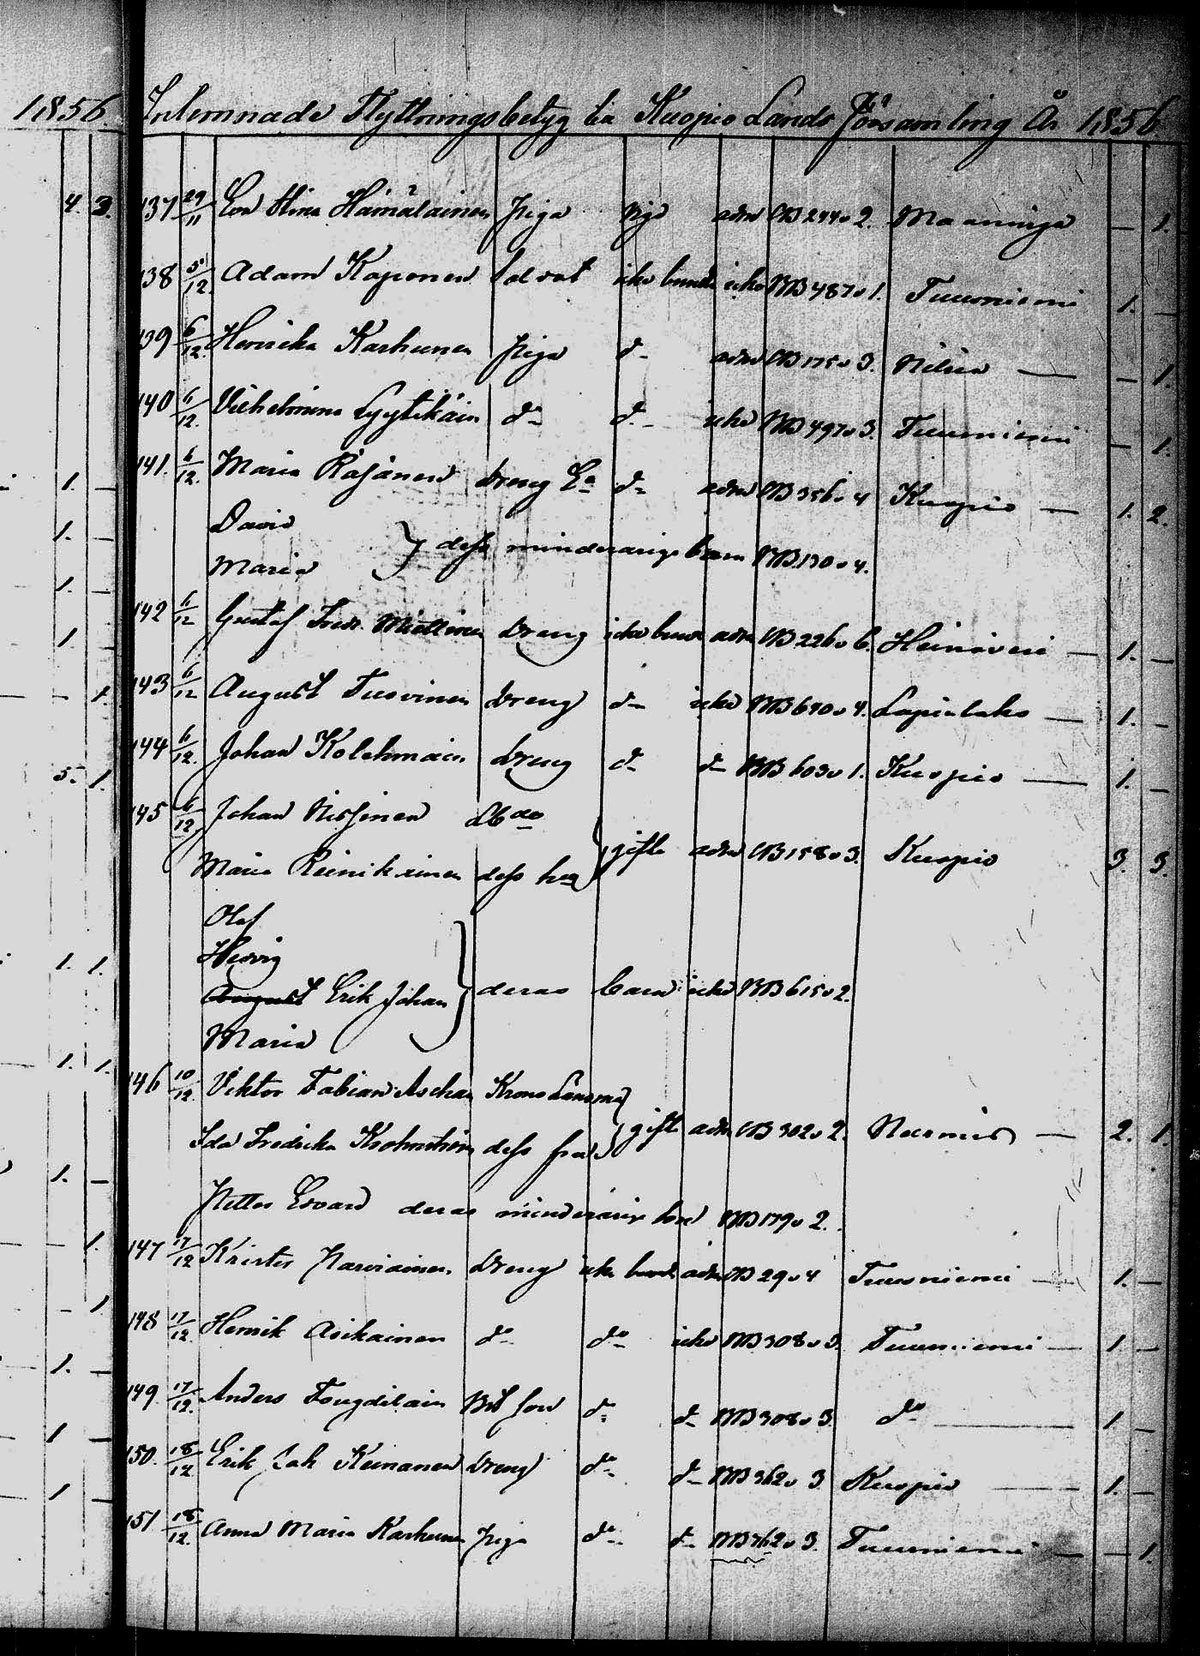 1856
Inlemnade Flyttningsbetyg till Kuopio Lands Församling År 1856
4. 3.
137 29/11 Eva Stina Hämäläinen Piga adm CB 244 v 2. Maaninga — 1.
138 5/12 Adam Kaponen Soldat icke icke BB 487 v 1. Tuusniemi 1. —
139 6/12 Henrika Karhunen Piga do adm CB 175 v 3. Nilsiä — — 1.
140 6/12 Vilhelmina Lyytikäin do do icke BB 497 v 3. Tuusniemi — 1.
141. 6/12 Maria Räsänen Dreng Ea do adm CB 356 v 4 Kuopio — 1. 2.
David
Maria } dess minderåriga barn BB 130 v 4.
142 6/12 Gustaf Fredr. Miettinen Dreng icke adm CB 226 v 6. Heinävesi — 1. —
143 6/12 August Tuovinen Dreng do icke BB 690 v 4. Lapinlaks — 1. —
144 6/12 Johan Kolehmain Dreng do do BB 603 v 1. Kuopio — 1.
145 6/12 Johan Nissinen
Maria Reinikainen dess hu } gifte adm CB 158 v 3. Kuopio 3. 3.
Olof
Hedvig
August Erik Johan } deras barn icke BB 615 v 2.
Maria
146 10/12 Viktor Fabian Aschan Krono Länsman
Ida Fredrika Krohnström dess fru } gifte adm CB 302 v 2. Nurmis — 2. 1.
Petter Edvard deras minderårig son BB 179 v 2.
147 17/12 Krister Parviainen Dreng icke adm CB 29 v 4 Tuusniemi — 1. —
148 17/12 Henrik Asikainen do do icke BB 308 v 3. Tuusniemi — 1 —
149. 17/12 Anders Tougdilain son do do BB 308 v 3. do — 1 —
150. 18/12 Erik Joh Keinanen Dreng do do BB 362 v 3 Kuopio — 1. —
151 18/12 Anna Maria Karhunen Piga do do BB 362 v 3. Tuusniemi — — 1.